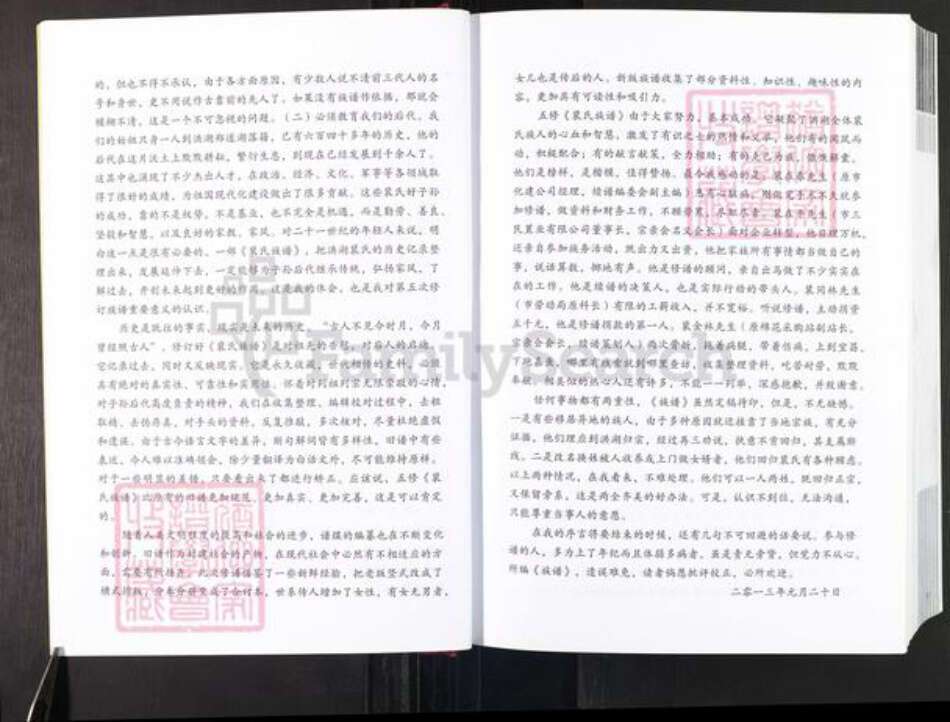 的，但也不得不承认，由于各方面原因，有少数人说不清前三代人的名
号和身世，更不用说作古靠前的先人了。如果没有族谱作依据，那就会
模糊不清，这是一个不可忽视的问题。（二）必须教育我们的后代。我
们的始祖只身一人到洪湖郑道湖落籍，已有六百四十多年的历史，他的
后代在这片沃土上默默耕耘，繁衍生息，到现在已经发展到千余人了。
这其中也涌现了不少杰出人才，在政治、经济、文化、军事等各领域取
得了很好的成绩，为祖国现代化建设做出了很多贡献。这些裴氏好子孙
的成功，靠的不是权势，不是基业，也不完全是机遇，而是勤劳、善良、
坚毅和智慧，以及良好的家教、家风。对二十一世纪的年轻人来说，明
白这一点是很有必要的。一部《裴氏族谱》，把洪湖裴氏的历史记录整
理出来，发展延伸下去，一定能够为子孙后代继承传统，弘扬家风，了
解过去，开创未来起到更好的作用。这是我的体会，也是我对第五次修
订族谱重要意义的认识。
历史是既往的事实，现实是未来的历史。“古人不见今时月，今月
曾经照古人”。修订好《裴氏族谱》是对祖先的告慰，对后人的启迪。
它记录过去，同时又反映现实。它是永久收藏，世代相传的史料，必须
具有绝对的真实性，可靠性和实用性。怀着对列祖列宗无限崇敬的心情，
对子孙后代高度负责的精神，我们在收集整理、编辑校对过程中，去粗
取精、去伪存真，对手头的资料，反复推敲，多次核对，尽量杜绝虚假
和遗误。由于古今语言文字的差异，断句解词皆有多样性，旧谱中有些
表述，令人难以准确领会，除少量翻译为白话文外，尽可能维持原样。
对于一些明显的差错，只要看出来了都进行矫正。应该说，五修《裴
氏族谱》比原有的旧谱更加规范、更加真实、更加完善，这是可以肯定
的。
随着人类文明程度的提高和社会的进步，谱牒的编纂也在不断变化
和创新。旧谱作为封建社会的产物，在现代社会中必然有不相适应的方
面，需要有所扬弃。此次修谱借鉴了一些新鲜经验，把老版竖式改成了
横式排版，分卷分册变成了合订本，世系传人增加了女性，有女无男者，
女儿也是传后的人。新版族谱收集了部分资料性、知识性、趣味性的内
容，更加具有可读性和吸引力。
五修《裴氏族谱》由于大家努力，基本成功。它凝聚了洪湖全体裴
氏族人的心血和智慧，激发了有识之士的热情和义举，他们有的闻风而
动，积极配合；有的献言献策，全力相助；有的
他们是榜样，是楷模，值得赞扬。最令我感动的是，裴在
化建公司经理，续谱编委会副主编）患有心脏病，刚做完手术不久就参
加修谱，做资料和财务工作，不顾劳累，尽职尽责。裴在
民置业有限公司董事长，宗亲会名义会长）面对企业转型，他日理万机，
还亲自参加族务活动，既出力又出资，他把家族所有事情都当做自己的
事，说话算数，掷地有声。他是修谱的顾问，亲自出马做了不少实实在
在的工作，他是续谱的决策人，也是实际行动的带头人。裴同林先生
（市劳动局原科长）有限的工薪收入，并不宽裕，听说修谱，主动捐资
五千元，他是修谱捐款的第一人。裴金林先生（原棉花采购站副站长，
宗亲会会长，续谱策划人）两次骨折，拖着病腿，带着伤痛，上到宝昌，
下抵
奉献。相类似的热心人还有许多，不能一一列举，深感抱歉，并致谢意。
任何事物都有两重性，《族谱》虽然定稿待印，但是，不无缺憾。
一是有些移居异地的族人，由于多种原因就近挂靠了当地宗族，有充分
证据，他们理应到洪湖归宗，经过再三劝说，执意不肯回归，其支离断
线。二是改名换姓被人收养或上门做女婿者，他们回归裴氏有各种顾虑。
以上两种情况，在我看来，不难处理。他们可以一人两姓，既回归正宗，
又保留旁系，这是两全齐美的好办法。可是，认识不到位，无法沟通，
只能尊重当事人的意愿。
在我的序言将要结束的时候，还有几句不可回避的话要说。参与修
谱的人，多为上了年纪而且体弱多病者，虽是责无旁贷，但觉力不从心。
所编《族谱》，遗误难免，读者倘愿批评校正，必所欢迎。
二零一三年元月二十日
FamilySearch